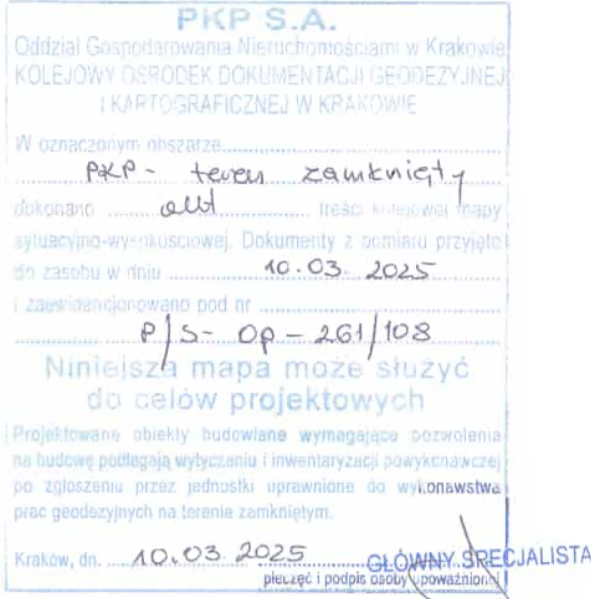 PKP S.A.
Oddział Gospodarowania Nieruchomościami w Krakowie
KOLEJOWY OŚRODEK DOKUMENTACJI GEODEZYJNEJ
I KARTOGRAFICZNEJ W KRAKOWIE
W oznaczonym obszarze
PKP - teren zamknięty
dokonano ........ treści kolejowej mapy
sytuacyjno-wysokościowej. Dokumenty z pomiaru przyjęto
do zasobu w dniu 10.03.2025
i zaewidencjonowano pod nr
P/S - Op - 261/108
Niniejsza mapa może służyć
do celów projektowych
Projektowane obiekty budowlane wymagające pozwolenia
na budowę podlegają wytyczeniu i inwentaryzacji powykonawczej
po zgłoszeniu przez jednostki uprawnione do wykonawstwa
prac geodezyjnych na terenie zamkniętym.
Kraków, dn. 10.03.2025 GŁÓWNY SPECJALISTA
pieczęć i podpis osoby upoważnionej